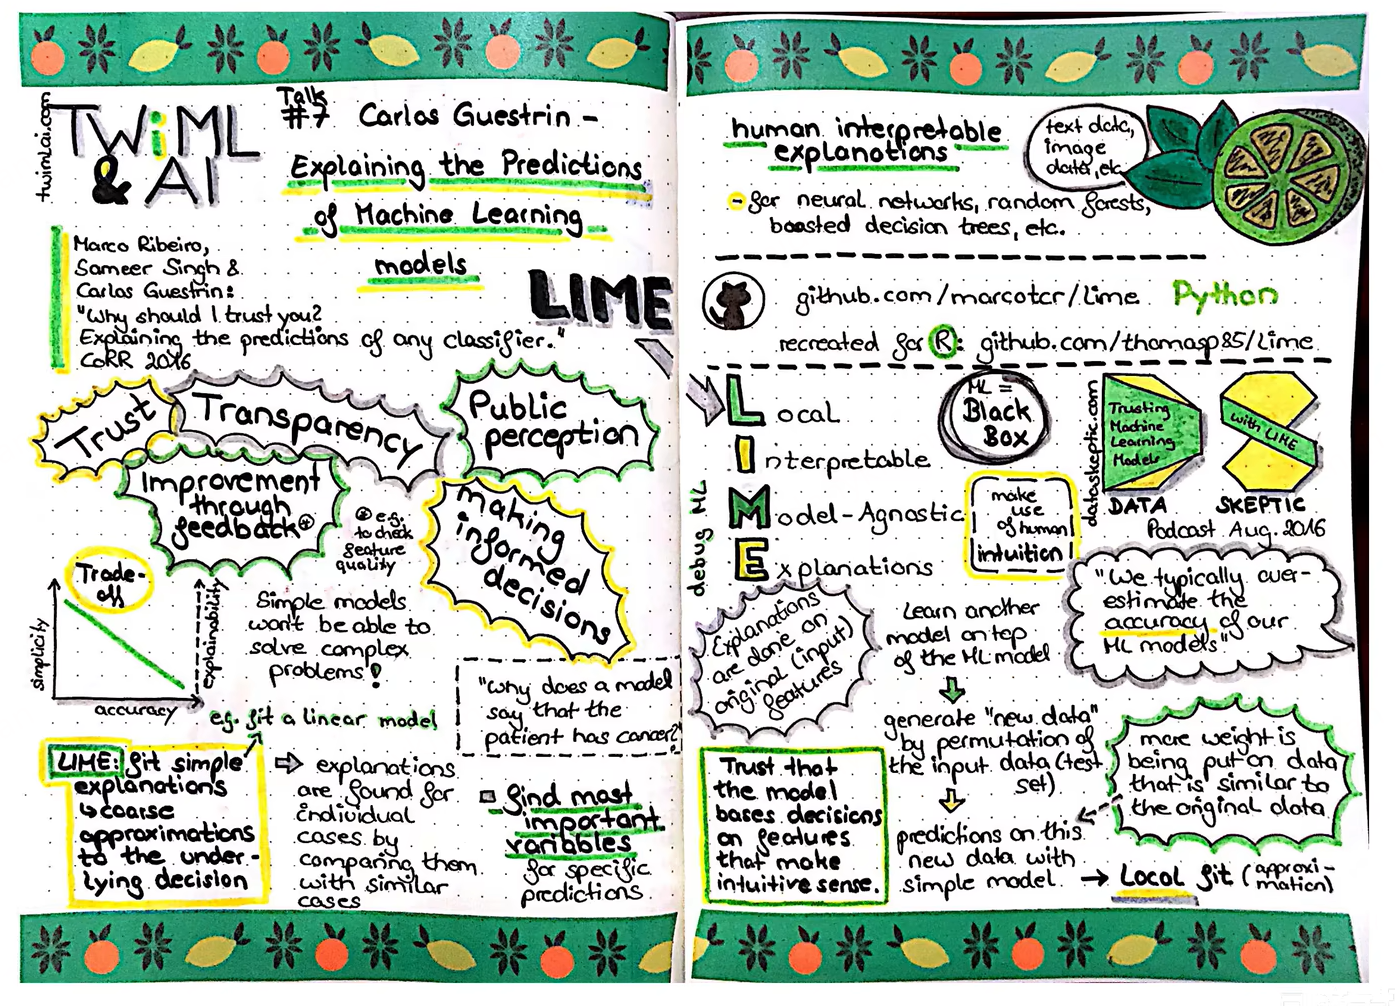 twimlai.com
TWiML
& AI
Talk
#7 Carlos Guestrin -
Explaining the Predictions
of Machine Learning
models
Marco Ribeiro,
Sameer Singh &
Carlos Guestrin:
"Why should I trust you?
Explaining the predictions of any classifier."
CoRR 2016
LIME
Trust
Transparency
Public
perception
Improvement
through
feedback*
* e.g.
to check
feature
quality
making
informed
decisions
Trade-
off
simplicity
accuracy
explainability
Simple models
won't be able to
solve complex
problems!
e.g. fit a linear model
"Why does a model
say that the
patient has cancer?"
LIME: fit simple
explanations
↳ coarse
approximations
to the under-
lying decision
⇒ explanations
are found for
individual
cases by
comparing them
with similar
cases
find most
important
variables
for specific
predictions
human interpretable
explanations
text data,
image
data, etc.
- for neural networks, random forests,
boosted decision trees, etc.
github.com/marcotcr/lime Python
recreated for R: github.com/thomasp85/lime
Local
Interpretable
Model-Agnostic
Explanations
debug ML
ML =
Black
Box
make
use
of human
intuition
dataskeptic.com
Trusting
Machine
Learning
Models
with LIME
DATA SKEPTIC
Podcast Aug. 2016
"We typically over-
estimate the
accuracy of our
ML models"
Explanations
are done on
original (input)
features
Learn another
model on top
of the ML model
generate "new data"
by permutation of
the input data (test
set)
predictions on this
new data with
simple model. → Local fit (approxi-
mation)
more weight is
being put on data
that is similar to
the original data
Trust that
the model
bases decisions
on features
that make
intuitive sense.